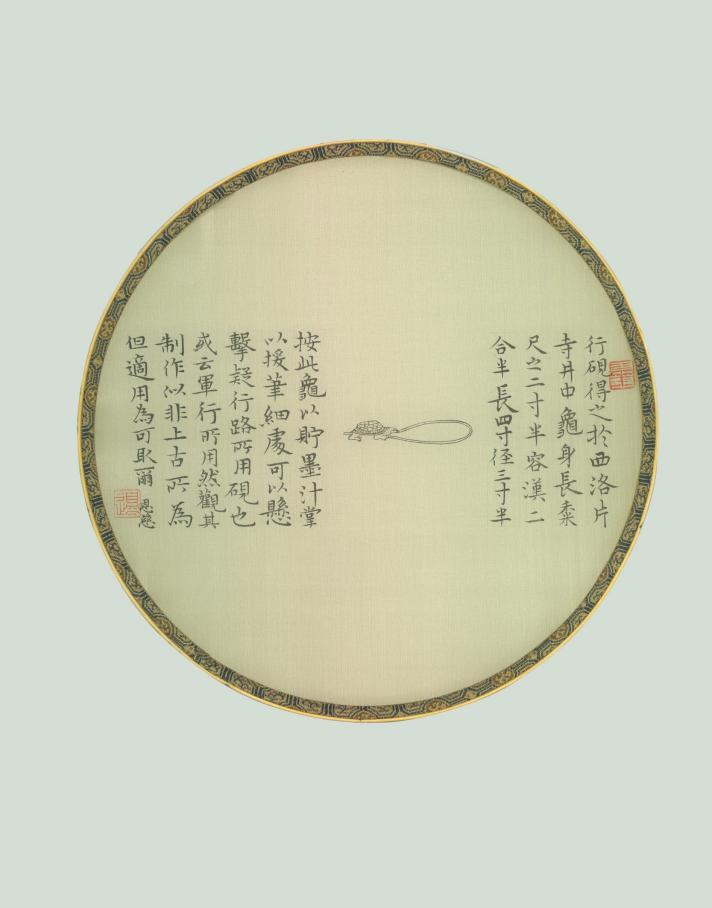 行硯得之於西洛片
寺井中龜身長黍
尺之二寸半容漢二
合半長四寸徑三寸半
按此龜以貯墨汁掌
以援筆細處可以懸
擊疑行路所用硯也
或云軍行所用然觀其
制作似非上古所為
但適用為可取爾
恩慈